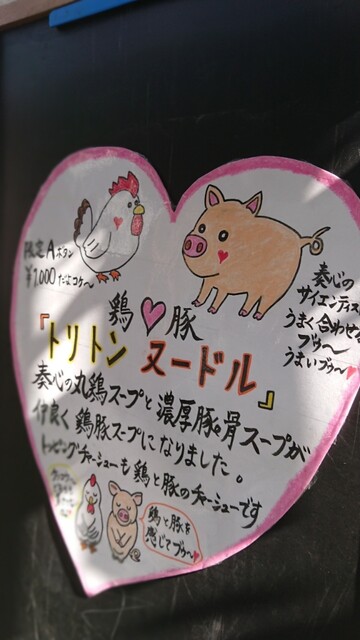 限定Aボタン
¥1,000 だよコケ〜
奏心の
サイエンティスト
うまく合わせ
ブゥ〜
うまいブゥ〜
鶏♡豚
『トリトン ヌードル』
奏心の丸鶏スープと濃厚豚骨スープが
仲良く鶏豚スープになりました。
トッピングチャーシューも鶏と豚のチャーシューです
鶏と豚を
感じてブゥ〜